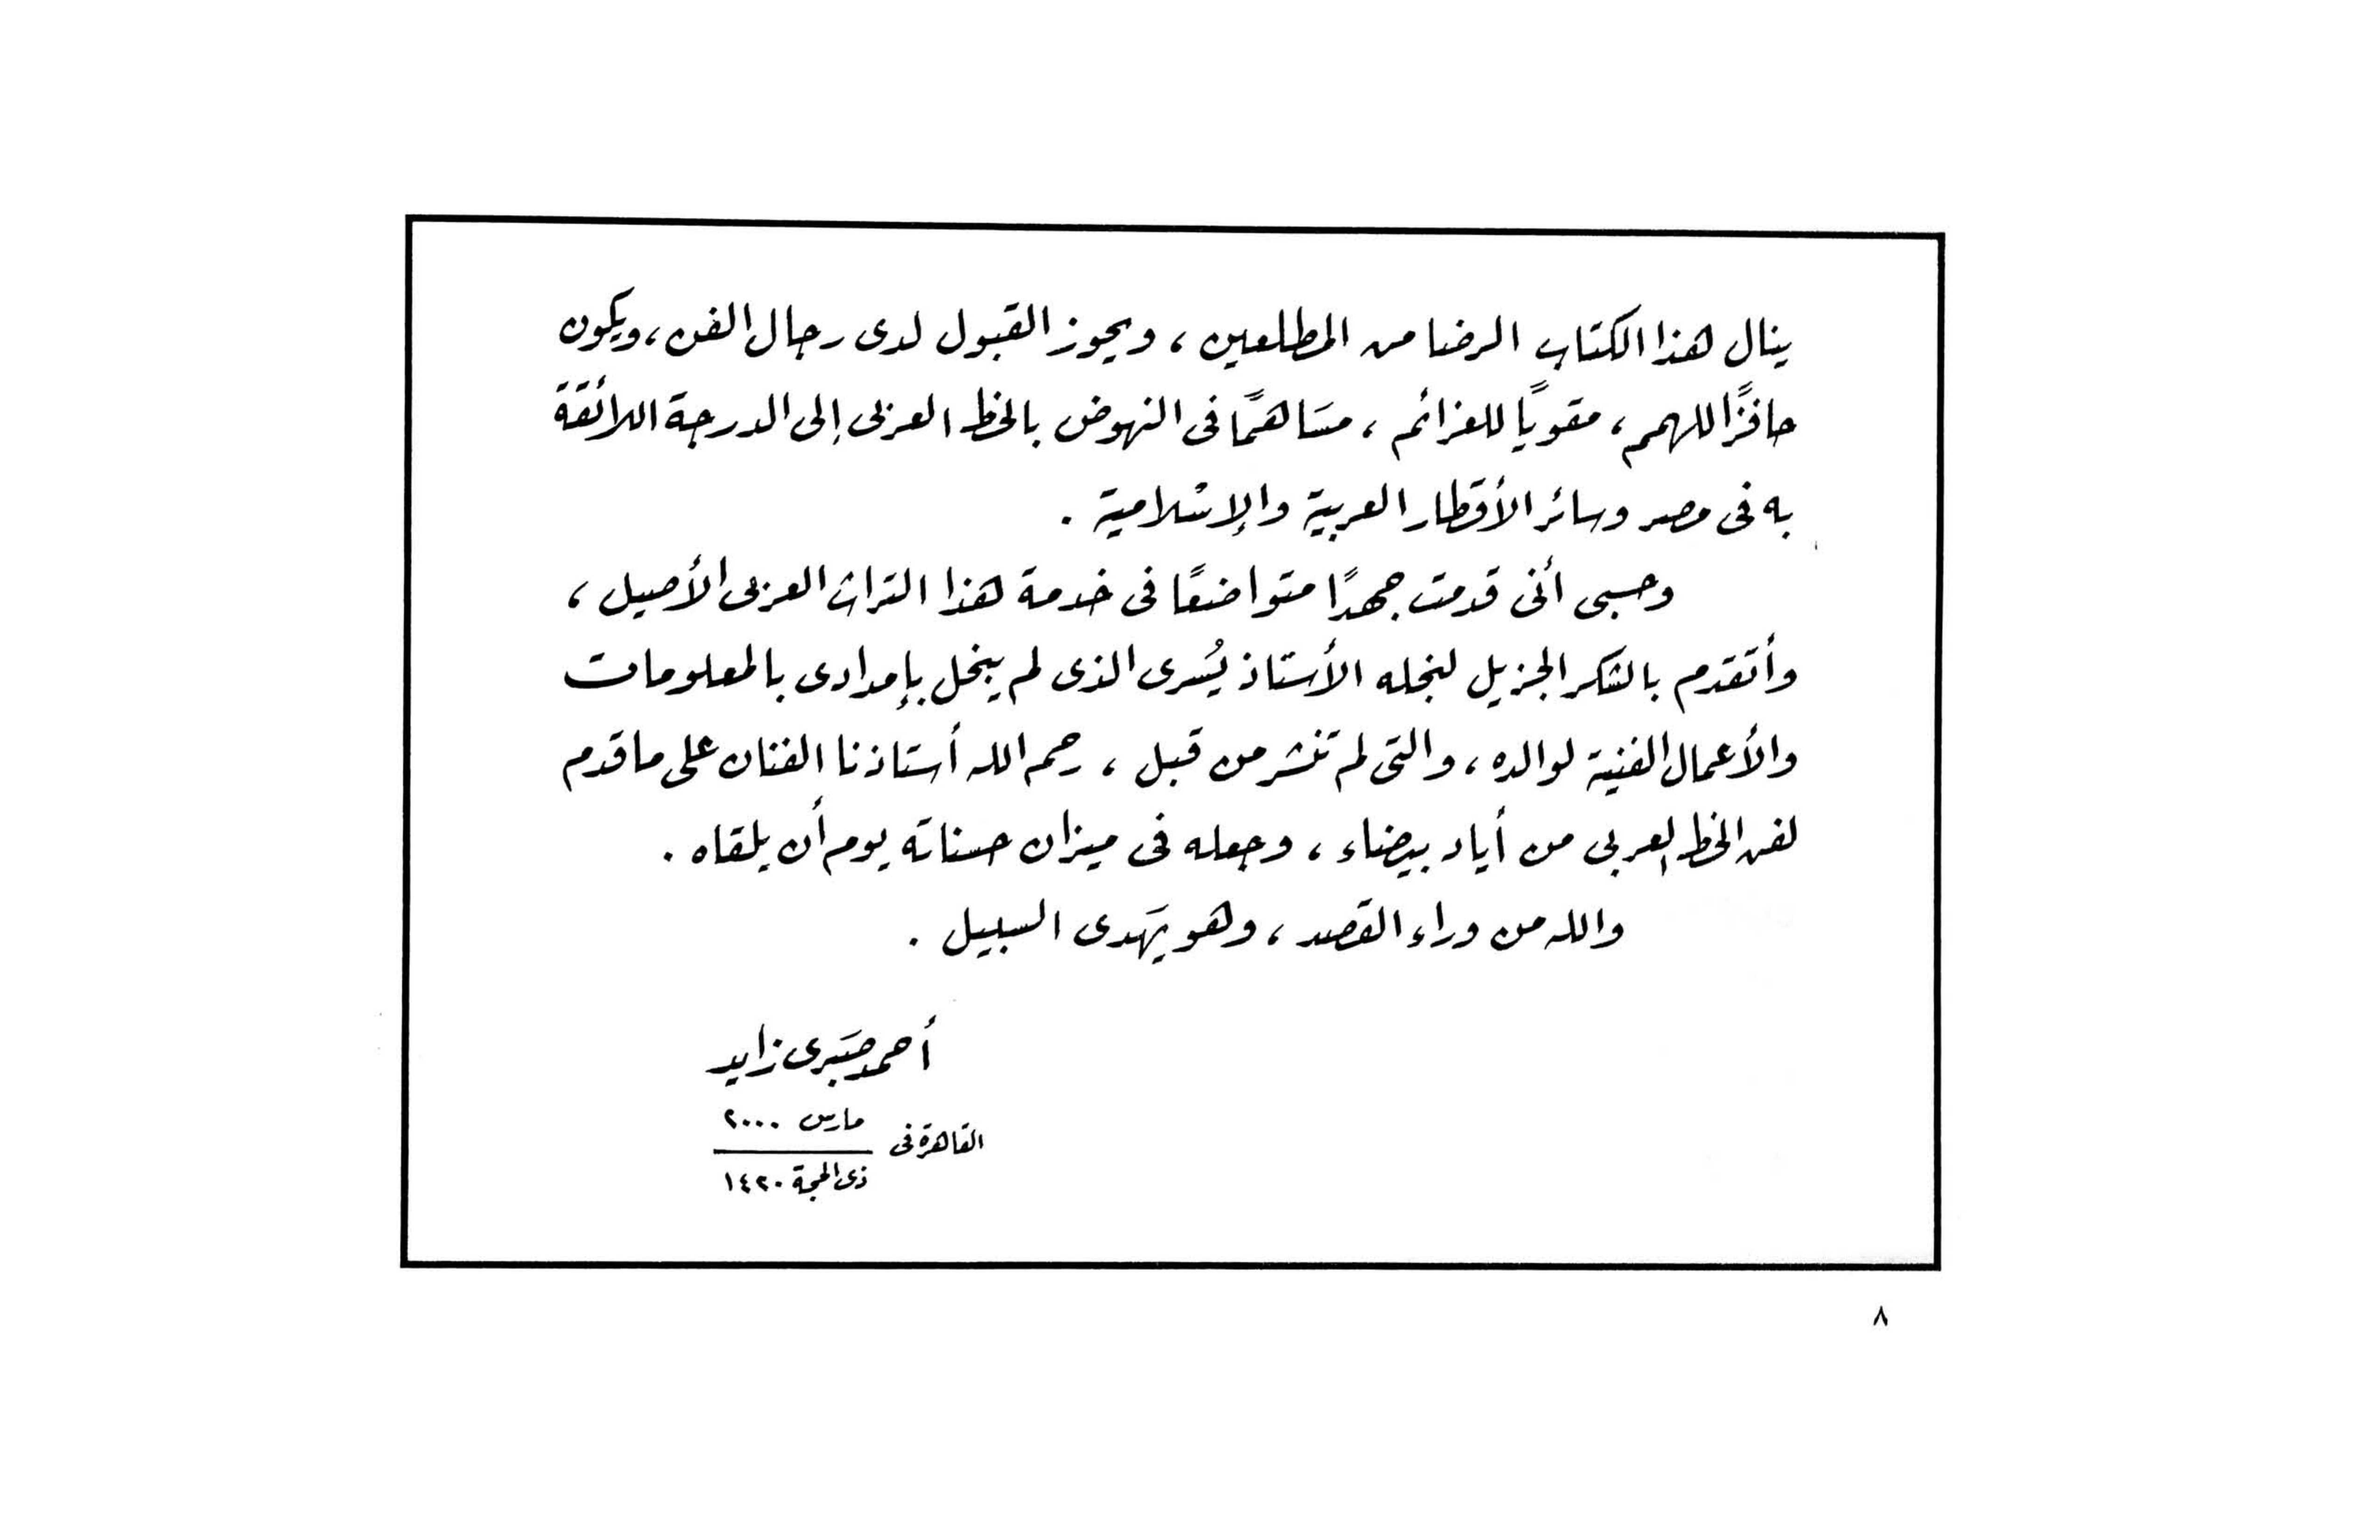 ينال هذا الكتاب الرضا من المطلعين ، ويحوز القبول لدى رجال الفن ، ويكون
حافزًا للهمم ، مقويًا للعزائم ، مسَاهمًا فى النهوض بالخط العربى إلى الدرجة اللائقة
به فى مصر وسائر الأقطار العربية والإسْلامية .
وحسبى أنى قدمت جهدًا متواضعًا فى خدمة هذا التراث العربى الأصيل ،
وأتقدم بالشكر الجزيل لنجله الأستاذ يُسْرى الذى لم يبخل بإمدادى بالمعلومات
والأعمال الفنية لوالده ، والتى لم تنشر من قبل ، رحم الله أستاذنا الفنان على ما قدم
لفن الخط العربى من أياد بيضاء ، وجعله فى ميزان حسناته يوم أن يلقاه .
والله من وراء القصد ، وهو يَهدى السبيل .
أحمد صَبرى زايد
القاهرة فى
مارس ٢٠٠٠
ذى الحجة ١٤٢٠
٨